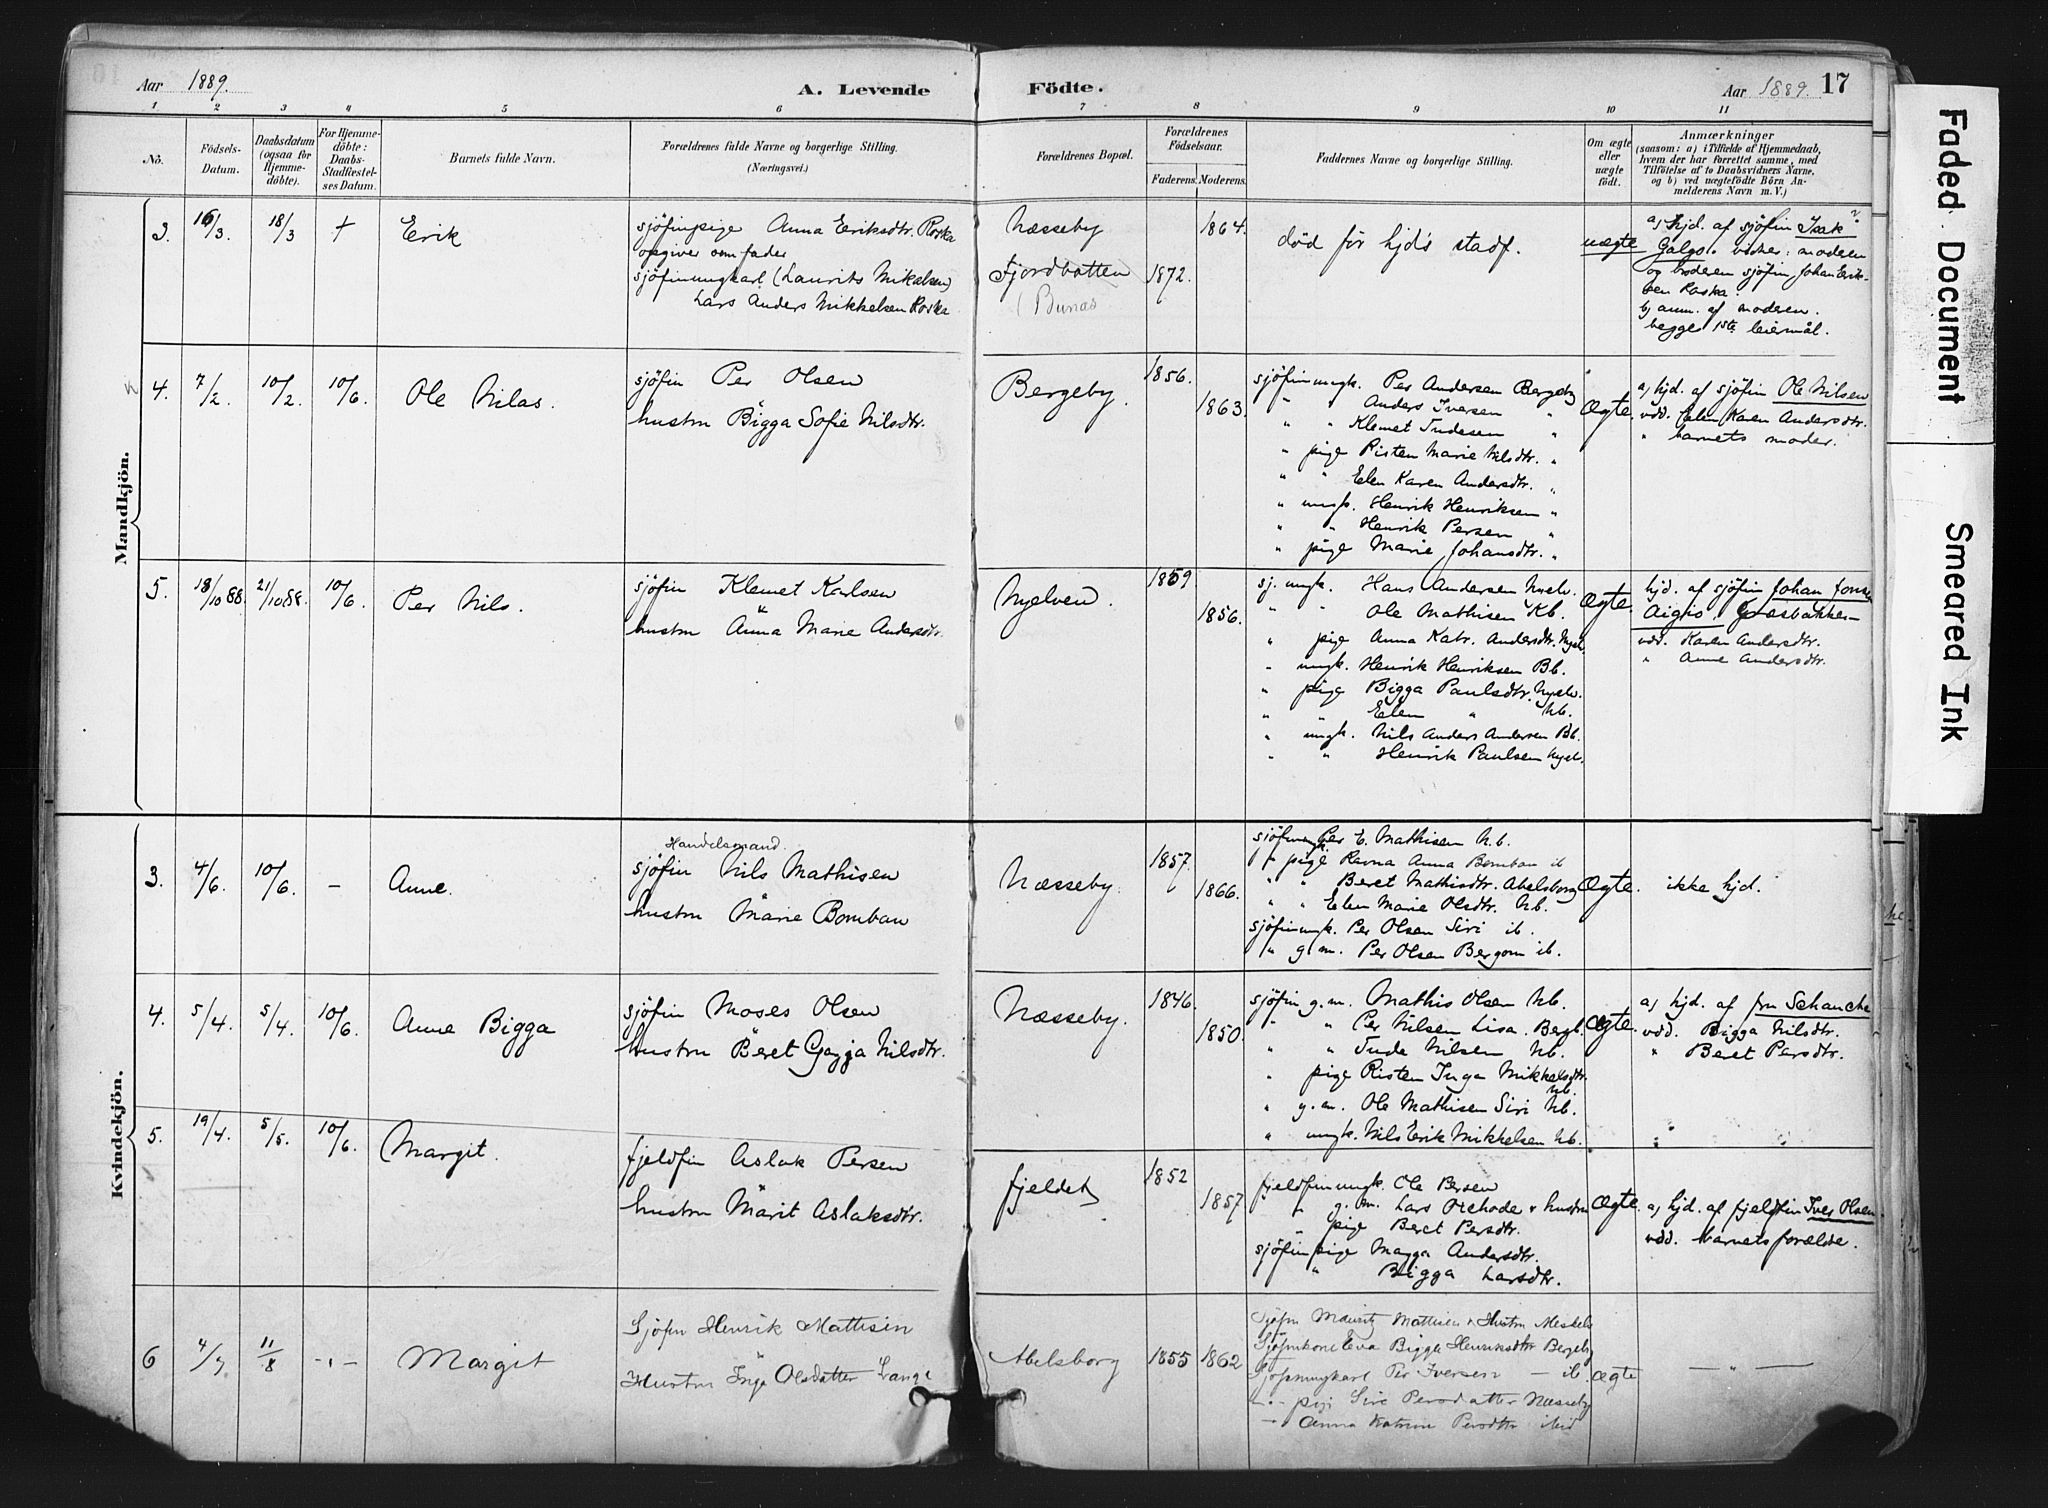 Aar 1889.
A. Levende
Födte.
Aar 1889. 17
1 2 3 4 5 6 7 8 9 10 11
No.
Födsels-
Datum.
Daabsdatum
(ogsaa for
Hjemme-
döbte).
For Hjemme-
döbte:
Daabs-
Stadfæstel-
ses Datum.
Barnets fulde Navn.
Forældrenes fulde Navne og borgerlige Stilling.
(Næringsvei.)
Forældrenes Bopæl.
Forældrenes
Födselsaar.
Faderens. Moderens.
Faddernes Navne og borgerlige Stilling.
Om ægte
eller
uægte
födt.
Anmærkninger
(saasom: a) i Tilfælde af Hjemmedaab,
hvem der har forrettet samme, med
Tilföielse af to Daabsvidners Navne,
og b) ved uægtefödte Börn An-
melderens Navn m. V.)
Mandkjön.
3. 16/3. 18/3 + Erik
sjöfinpige Anna Eriksdtr. Roska
opgiver som fader
sjöfinungkarl (Laurits Mikalsen)
Lars Anders Mikkelsen Roska
Næsseby
Fjordbotten
(Bunas
1864.
1872.
död för hjd's stadf.
uægte
a) hjd. af sjöfin Isak
Galgo. vidner: moderen
og broderen sjöfin Johan Erik-
sen Roska.
b) anm. af moderen.
begge 1ste leiermål.
4. 7/2. 10/2. 10/6. Ole Nilas.
sjöfin Per Olsen
hustru Bigga Sofie Nilsdtr.
Bergeby.
1856.
1863.
sjöfinungk. Per Andersen Bergeby
" " Anders Iversen "
" " Klemet Tudesen "
" pige Risten Marie Nilsdtr. "
" " Elen Karen Andersdtr. "
" ungk. Henrik Henriksen "
" " Henrik Persen "
" pige Marie Johansdtr. "
Ægte.
a) hjd. af sjöfin Ole Nilsen
vdd. Elen Karen Andersdtr.
" barnets moder.
5. 18/10 88. 21/10 88. 10/6. Per Nils.
sjöfin Klemet Karlsen
hustru Anna Marie Andersdtr.
Nyelven.
1859
1856.
sj. ungk. Hans Andersen Nyelv.
" " Ole Mathisen Kb.
" pige Anna Katr. Andersdtr. Nyel.
" ungk. Henrik Henriksen Bb.
" pige Bigga Paulsdtr. Nyelv.
" " Elen " Nb.
" ungk. Nils Anders Andersen Bb.
" " Henrik Paulsen Nyelv.
Ægte.
hjd. af sjöfin Johan Jonsen
Aigio. Græsbakken
vdd. Karen Andersdtr.
" Anne Andersdtr.
Kvindekjön.
3. 4/6. 10/6. - Anne.
Handelsmand.
sjöfin Nils Mathisen
hustru Marie Bomban
Næsseby.
1857.
1866.
sjöfinungk. Per E. Mathisen Nb.
" pige Ravna Anna Bomban ib
" " Beret Mathisdtr. Abelsborg
" " Elen Marie Olsdtr. Nb.
sjöfinungk. Per Olsen Siri ib.
" g.m. Per Olsen Bergom ib.
Ægte.
ikke hjd.
4. 5/4. 5/4. 10/6. Anne Bigga
sjöfin Moses Olsen
hustru Beret Gagga Nilsdtr.
Næsseby.
1846.
1850.
sjöfin g.m. Mathis Olsen Nb.
" " Per Nilsen Lisa. Bergb.
" " Tude Nilsen Nb.
" pige Risten Inga Mikkelsdtr.
Nb.
" g.m. Ole Mathisen Siri Nb.
" ungk. Nils Erik Mikkelsen Nb.
Ægte.
a) hjd. af fru Schanche
vdd. Bigga Nilsdtr.
" Beret Persdtr.
5. 19/4. 5/5. 10/6. Margit.
fjeldfin Aslak Persen
hustru Marit Aslaksdtr.
fjeldet
1852
1857
fjeldfinungk. Ole Persen
" g.m. Lars + hustru
" pige Beret Persdtr.
sjöfinpige Magga Andersdtr.
" Bigga Larsdtr.
Ægte.
a) hjd. af fjeldfin Iver Olsen.
vdd. barnets forældre.
6 4/7 11/8 -"- Margit
Sjöfin Henrik Mattisen
Hustru Inga Olsdatter Lange
Abelsborg
1855 1862
Sjöfin Mauritz Mattisen + Hustru Meskelv
Sjöfinkone Eva Bigga Henriksdtr Bergeby
Sjöfinungkarl Per Iversen - ib.
-"- pige Siri Persdatter Næsseby
-"- Anna Katrine Persdtr ibid
Ægte
— " —
Faded Document
Smeared Ink